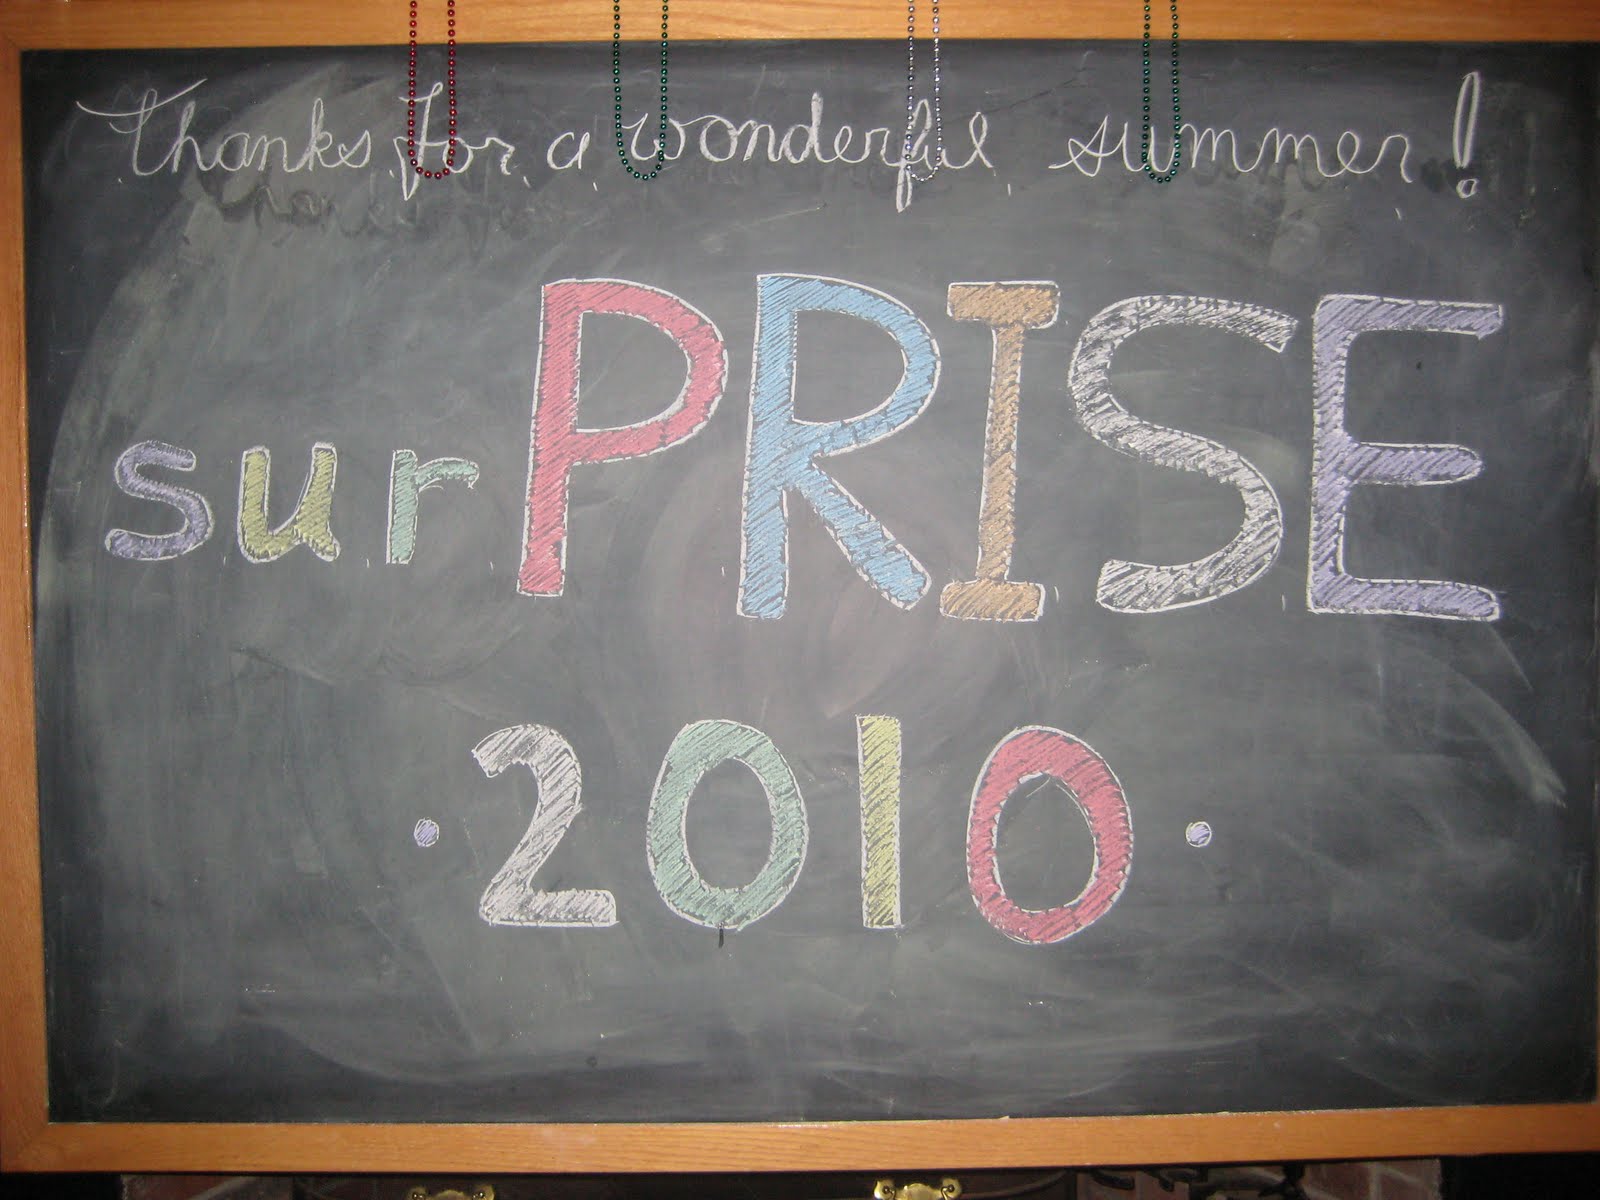 Thanks for a wonderful summer!
surPRISE
• 2010 •